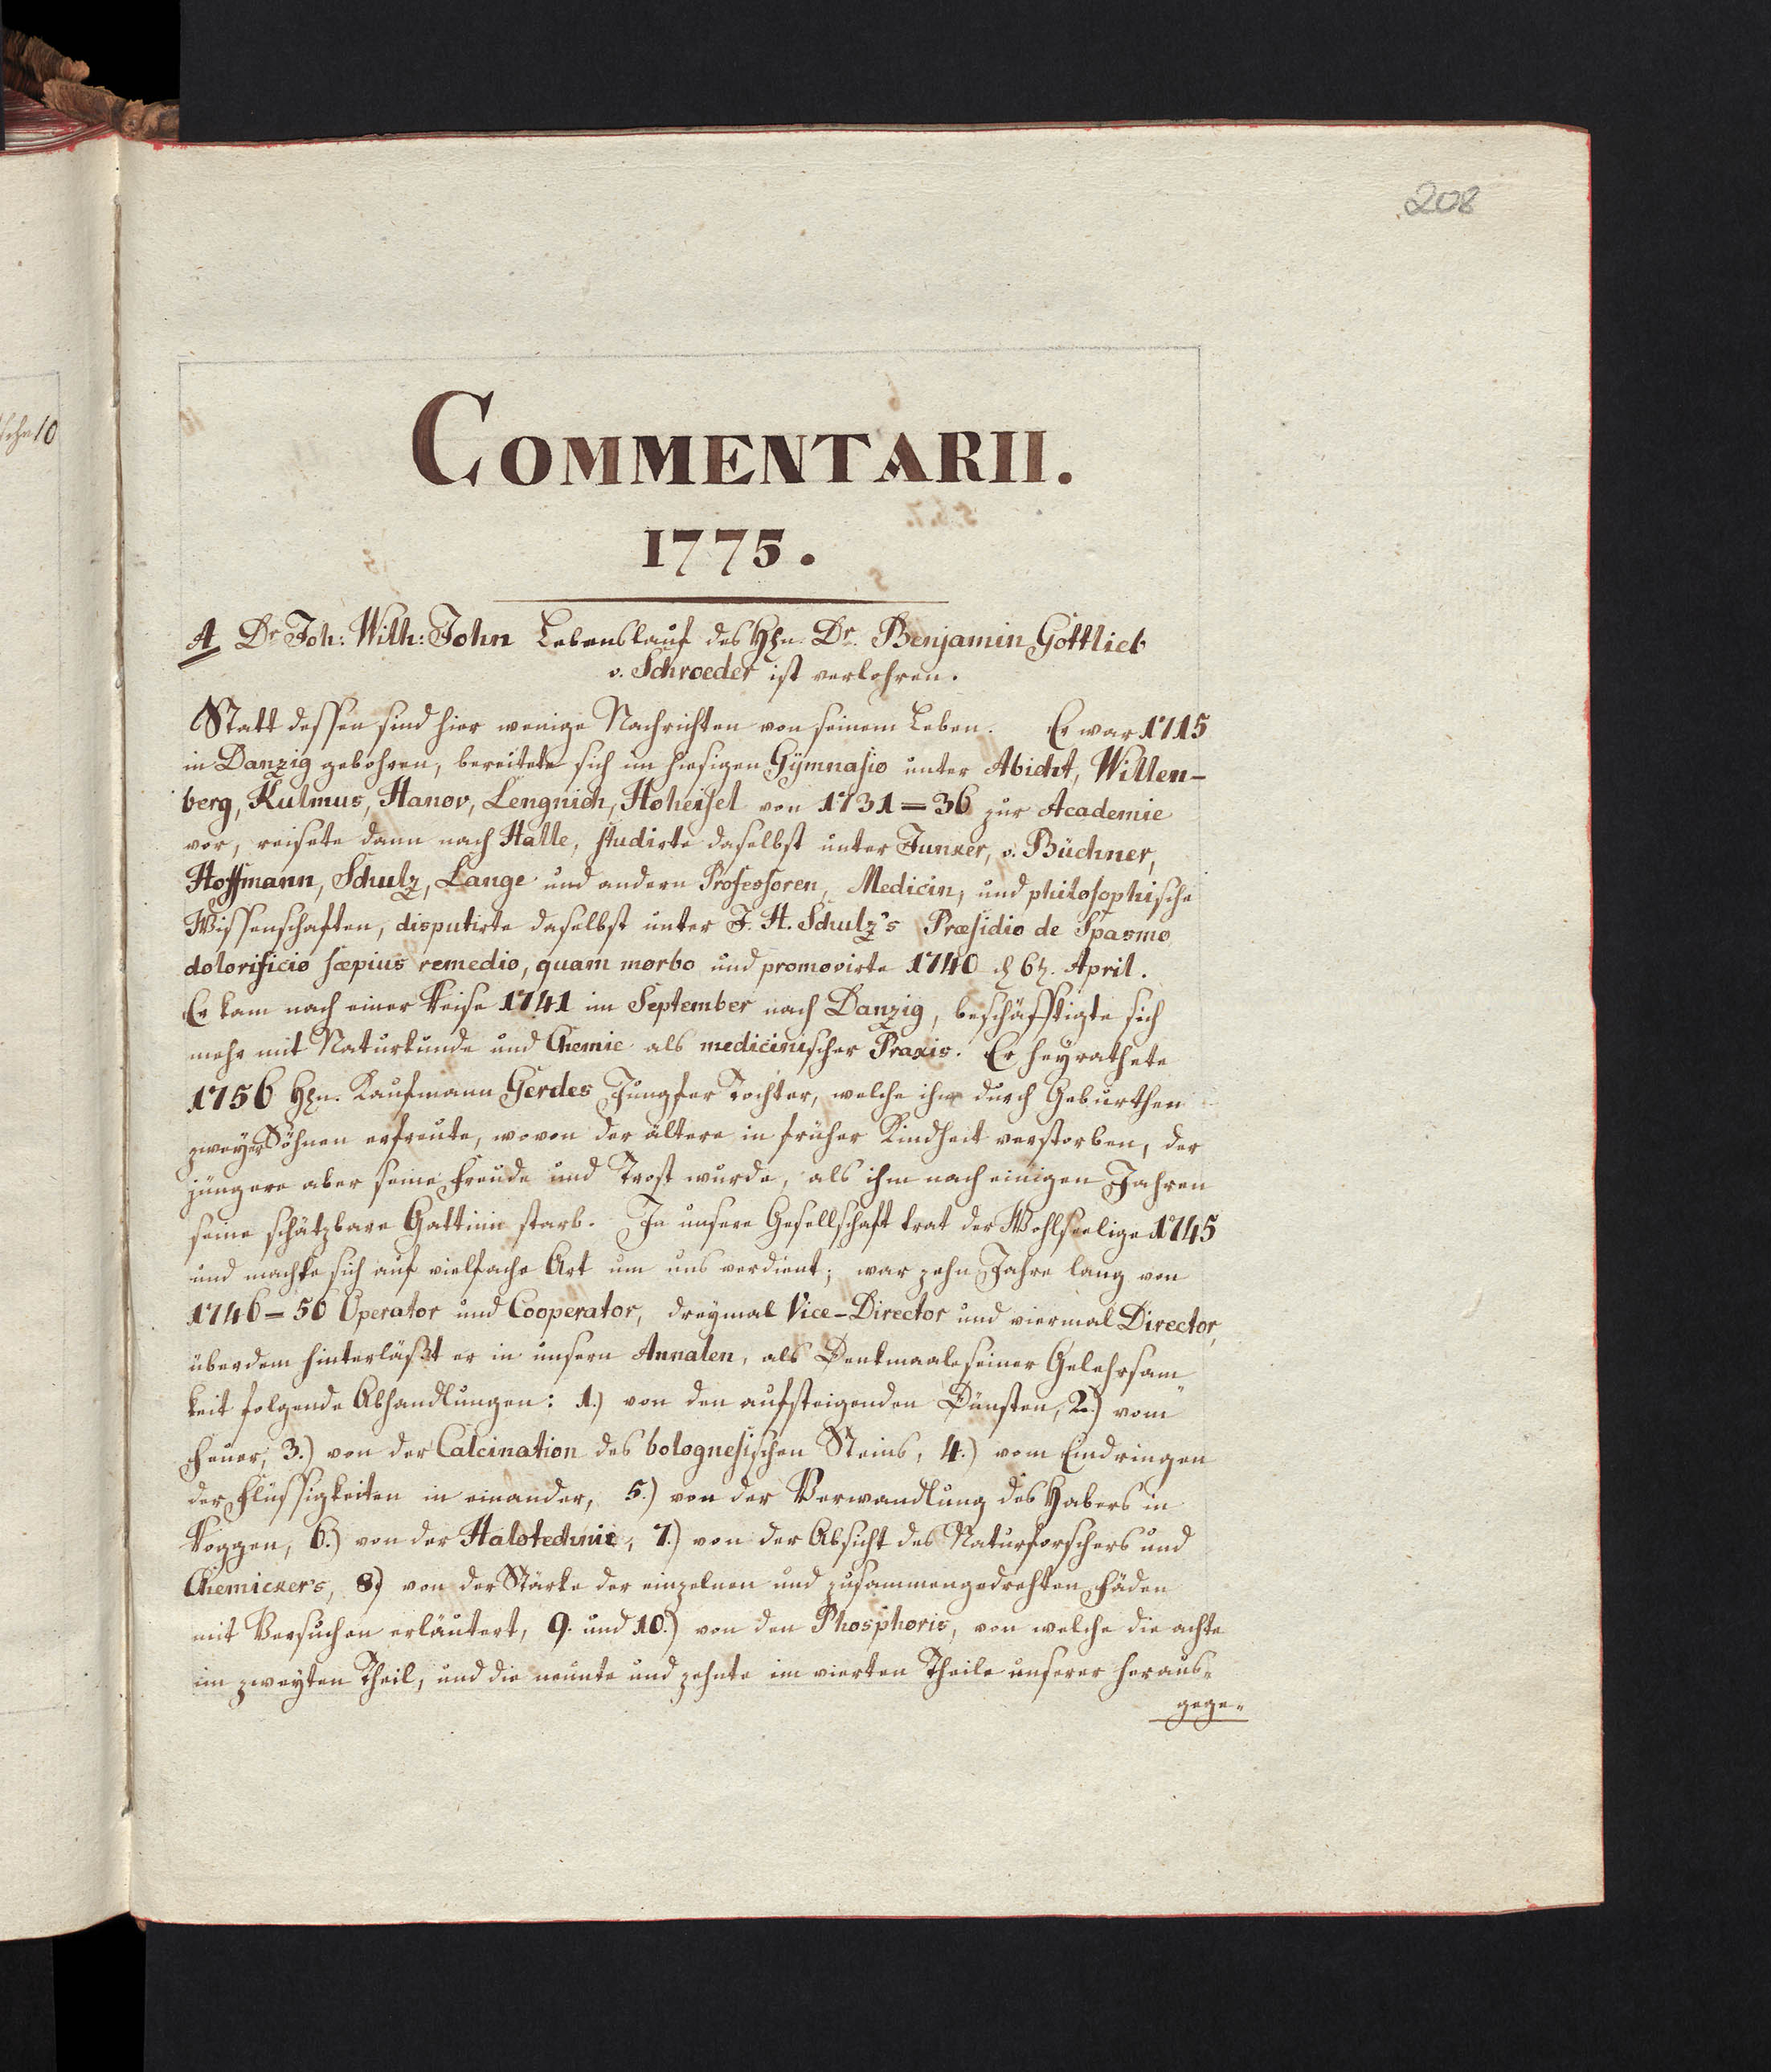 208
sehn10
COMMENTARII.
1775.
A Dr Joh: Wilh: John Lebenslauf des Hhn Dr. Benjamin Gottlieb
v. Schroeder ist verlohren.
Statt dessen sind hier wenige Nachrichten von seinem Leben. Er war 1715
in Danzig gebohren, bereitete sich im hiesigen Gÿmnasio unter Abicht, Willen-
berg, Kulmus, Hanov, Lengnich, Hoheisel von 1731=36 zur Academie
vor, reisete dann nach Halle, studirte daselbst unter Junker, v. Büchner,
Hoffmann, Schulz, Lange und andern Professoren, Medicin, und philosophische
Wissenschaften, disputirte daselbst unter J. H. Schulz's Præsidio de Spasmo
dolorificio sæpius remedio, quam morbo und promovirte 1740 d. 6t. April.
Er kam nach einer Reise 1741 im September nach Danzig, beschäfftigte sich
mehr mit Naturkunde und Chemie als medicinischer Praxis. Er heyrathete
1756 Hhn. Kaufmann Gerdes Jungfer Tochter, welche ihn durch Geburthen
zweyer Söhnen erfreute, wovon der ältere in früher Kindheit verstorben, der
jüngere aber seine Freude und Trost wurde, als ihm nach einigen Jahren
seine schätzbare Gattinn starb. In unsere Gesellschaft trat der Wohlseelige 1745
und machte sich auf vielfache Art um uns verdient; war zehn Jahre lang von
1746=56 Operator und Cooperator, dreymal Vice-Director und viermal Director,
überdem hinterläßt er in unsern Annalen, als Denkmaale seiner Gelehrsam„
keit folgende Abhandlungen: 1.) von den aufsteigenden Dünsten, 2.) vom
Feuer, 3.) von der Calcination des bolognesischen Steins, 4.) vom Eindringen
der Flüssigkeiten in einander, 5.) von der Verwandlung des Habers in
Roggen, 6.) von der Halotechnie, 7.) von der Absicht des Naturforschers und
Chemickers, 8.) von der Stärke der einzelnen und zusammengedrehten Fäden
mit Versuchen erläutert, 9. und 10.) von den Phosphoris, von welche die achte
im zweyten Theil, und die neunte und zehnte im vierten Theile unserer heraus„
gege„